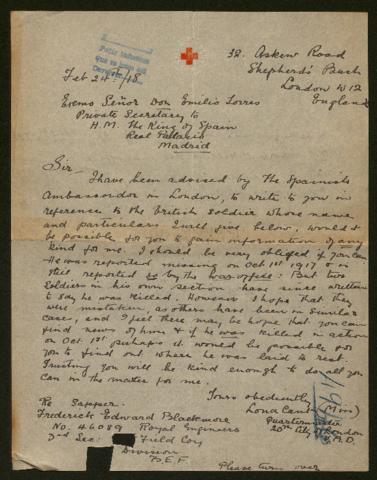 32. Askew Road
Shepherd's Bush
London W12
England
Feb 24th/18
Exemo Señor Don Emilio Torres
Private Secretary to
H.M. The King of Spain
Real Palacio
Madrid
Sir—
I have been advised by The Spanish
Ambassador in London, to write to you in
reference to the British soldier whose name
and particulars I will give below, would it
be possible for you to gain information of any
kind for me. I should be very obliged if you can
He was reported missing on Oct 1st 1917 & is
still reported so by the war office. But two
soldiers in his own section have since written
to say he was killed. However I hope that they
were mistaken, as others have been in similar
cases, and I feel there may be hope that you can
find news of him & if he was killed in action
on Oct 1st perhaps it would be possible for
you to find out where he was laid to rest.
Trusting you will be kind enough to do all you
can in the matter for me.
Yours obediently
(Miss)
Quartermaster
20th City of London
V.A.D.
Re Sapper.
Frederick Edward Blackmore
No. 46089 Royal Engineers
2nd Sec: Field Coy
Division
B.E.F.
Please turn over